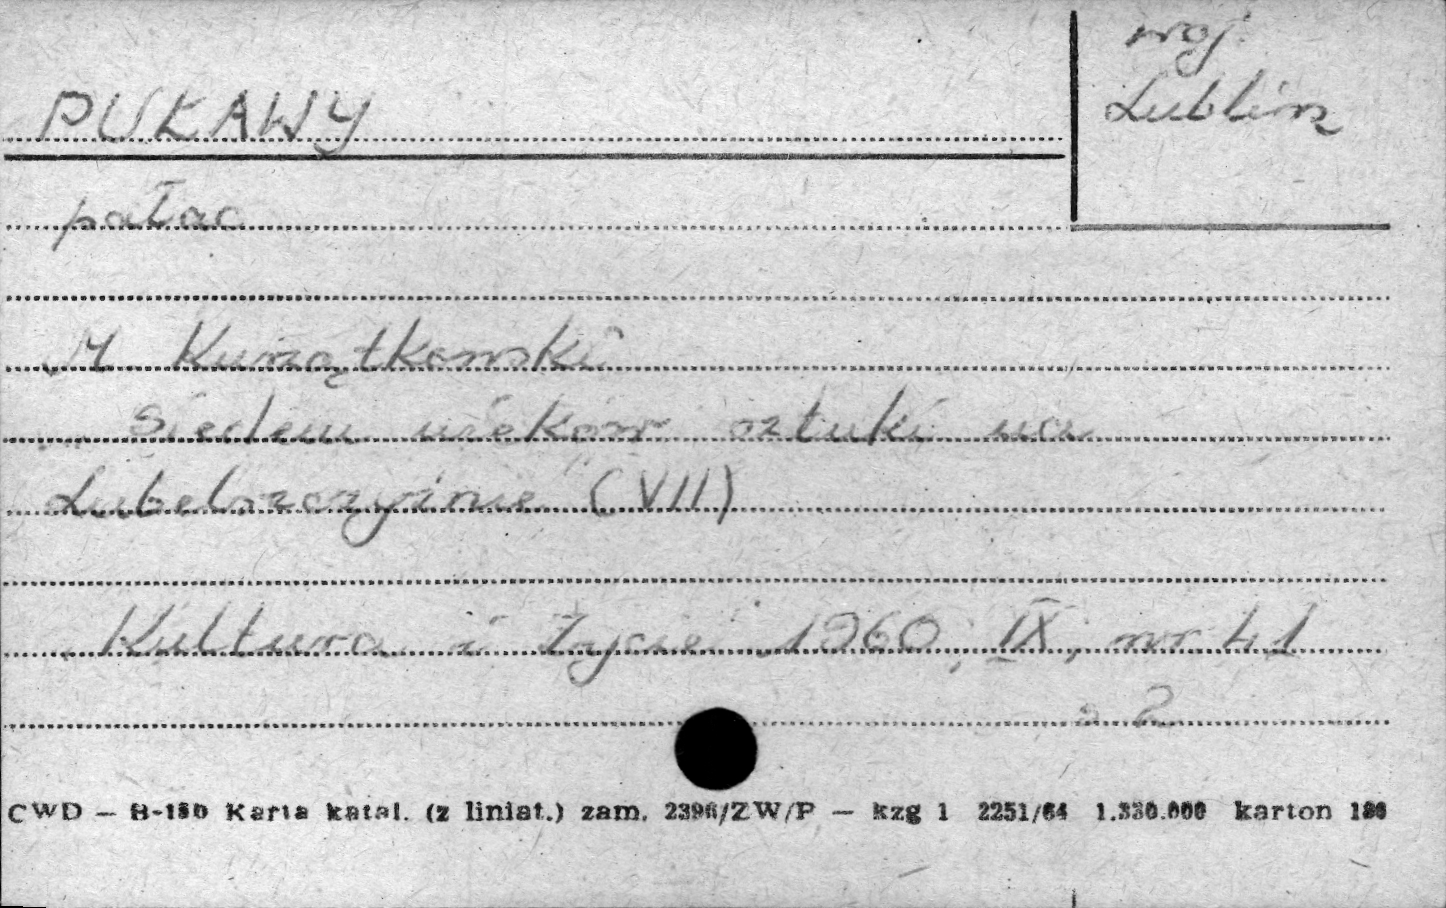 PUŁAWY
woj.
Lublin
pałac
M. Kurzątkowski
Siedem wieków sztuki na
Lubelszczyźnie (VII)
Kultura i Życie 1960, IX, nr 41
s 2
CWD — B-180 Karta katal. (z liniat.) zam. 2396/ZW/P — kzg 1 2251/64 1.330.000 karton 180